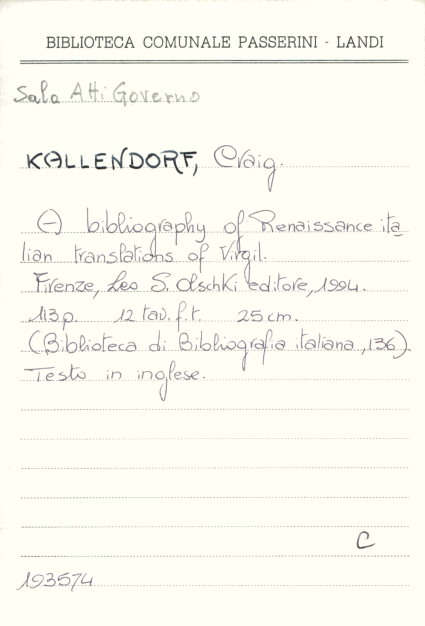 BIBLIOTECA COMUNALE PASSERINI - LANDI
Sala Atti Governo
KALLENDORF, Craig.
A bibliography of Renaissance ita
lian translations of Virgil.
Firenze, Leo S. Olschki editore, 1994.
113 p. 12 tav. f.t. 25 cm.
(Biblioteca di Bibliografia italiana, 136).
Testo in inglese.
C
193574